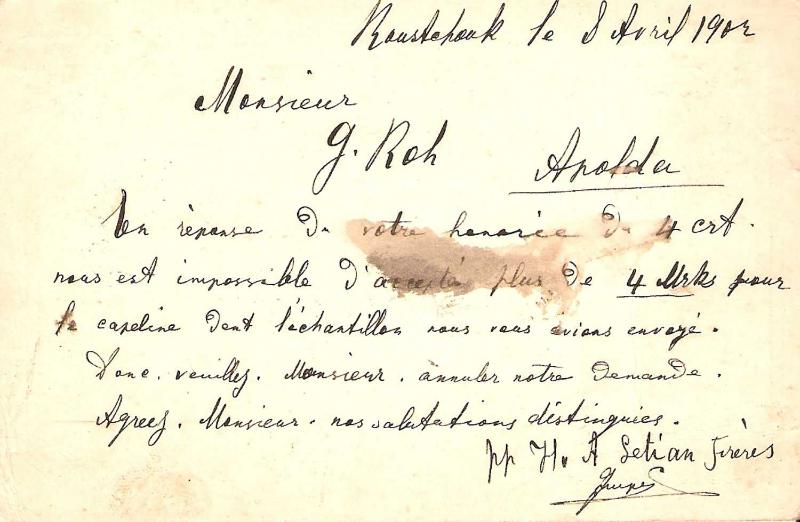 Roustchouk le 8 Avril 1902
Monsieur
G. Roh Apolda
En réponse du votre honorée du 4 crt.
nous est impossible d'accepté plus de 4 Mrks pour
la capeline dont l'échantillon nous vous avions envoyé.
Donc, veuillez, Monsieur, annuler notre demande.
Agreez, Monsieur, nos salutations distinguées.
pp H. A Setian Frères